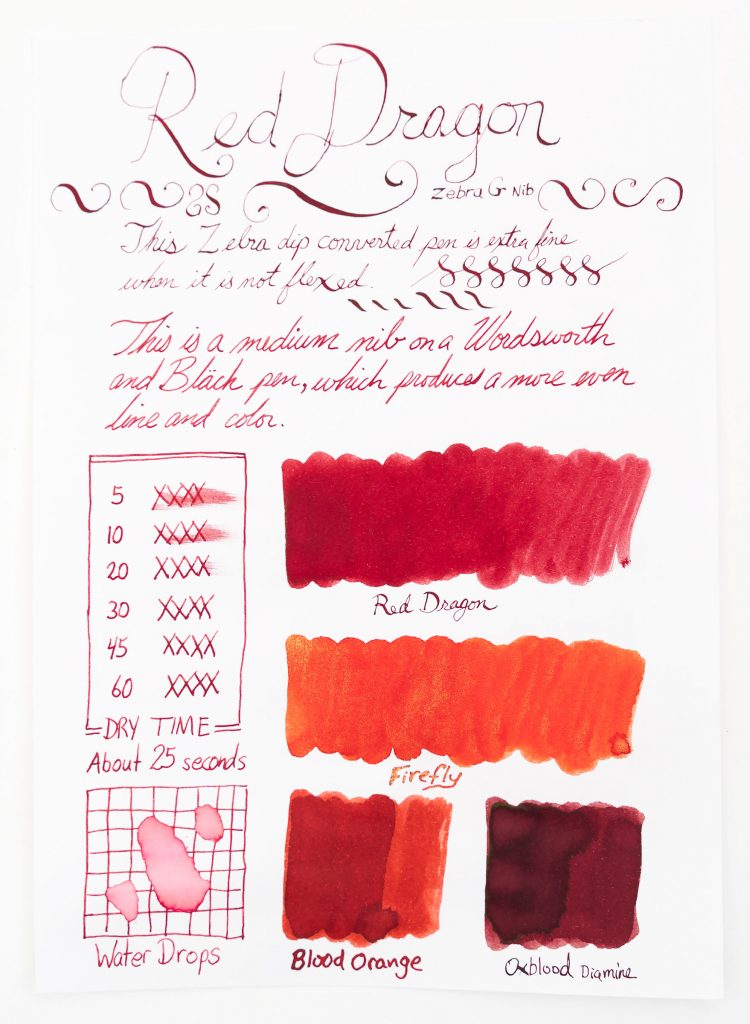 Red Dragon
Zebra G Nib
This Zebra dip converted pen is extra fine
when it is not flexed.
This is a medium nib on a Wordsworth
and Bläck pen, which produces a more even
line and color.
5 XXXX
10 XXXX
20 XXXX
30 XXXX
45 XXXX
60 XXXX
DRY TIME
About 25 seconds
Red Dragon
Firefly
Water Drops
Blood Orange
Oxblood Diamine